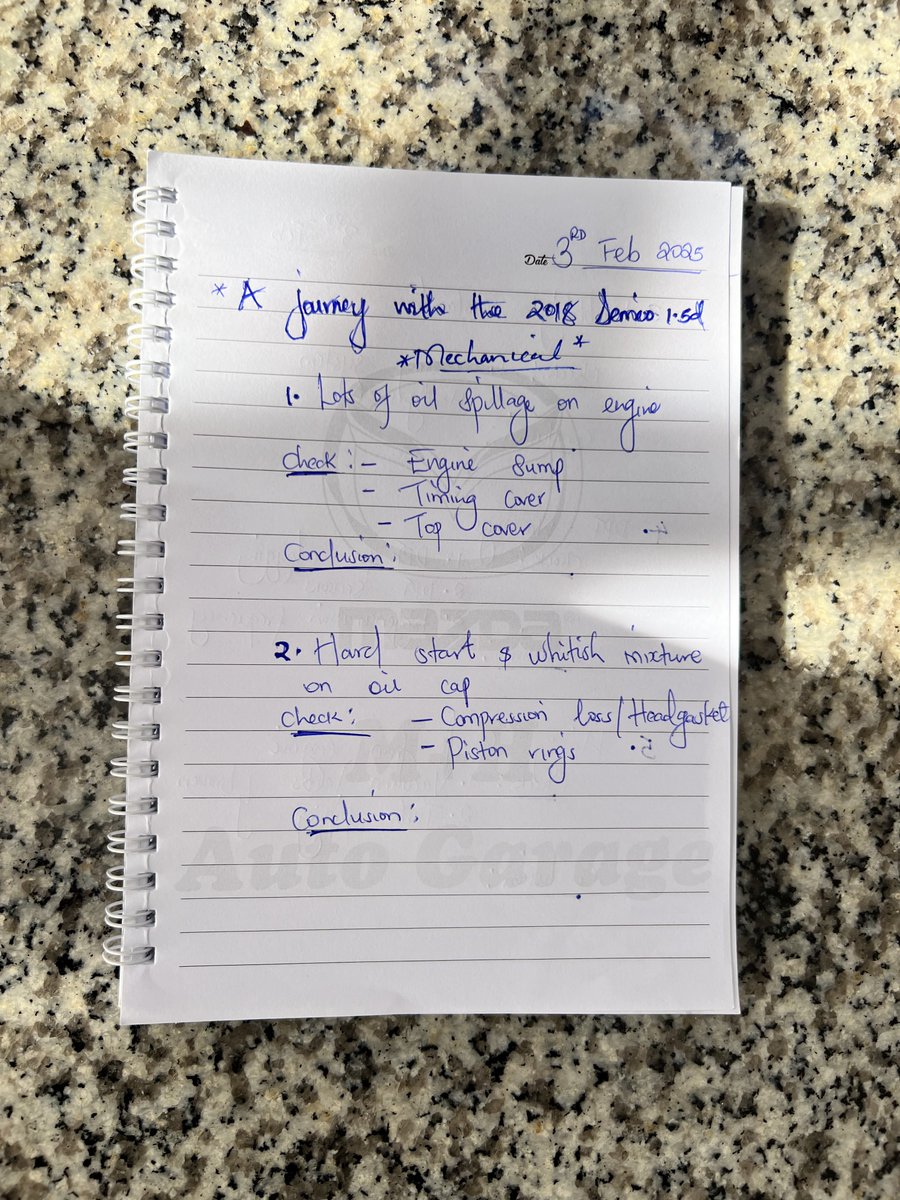 Date 3RD Feb 2025
* A journey with the 2018 Demio 1.5d
*Mechanical*
1. Lots of oil spillage on engine
Check :- Engine sump
- Timing cover
- Top cover
Conclusion :
mazda
2. Hard start & whitish mixture
on oil cap
Check : - Compression loss/Headgasket
- Piston rings
Conclusion :
Auto Garage